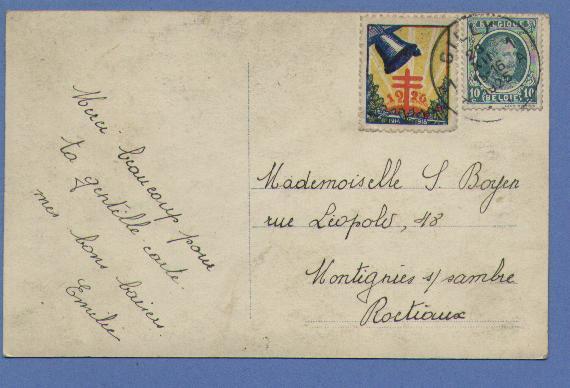 Merci beaucoup pour
ta gentille carte.
mes bons baisers.
Emelie
1926
BELGIQUE
10 10
BELGIË
Mademoiselle S. Boyen
rue Léopold, 48
Montignies s/ sambre
Roctiaux